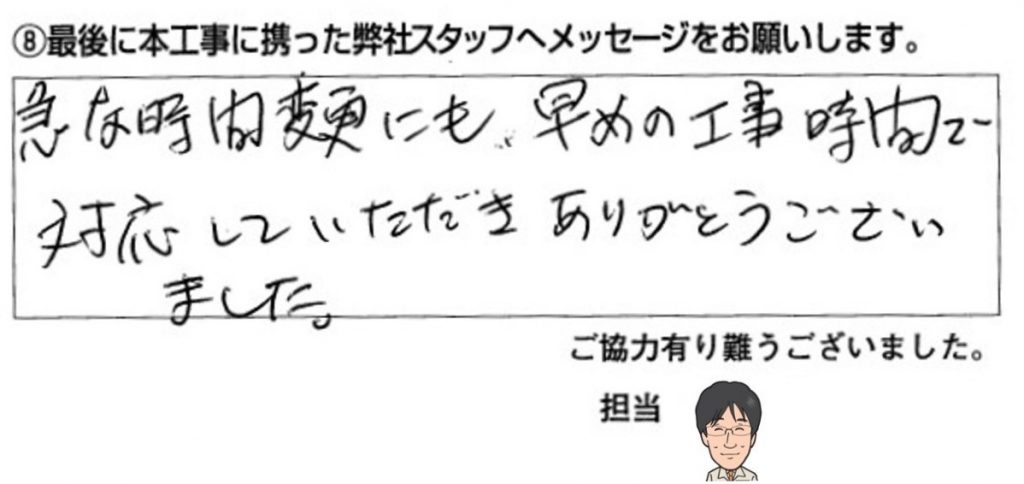 ⑧最後に本工事に携った弊社スタッフへメッセージをお願いします。
急な時間変更にも、早めの工事時間で
対応していただき ありがとうござい
ました。
ご協力有り難うございました。
担当